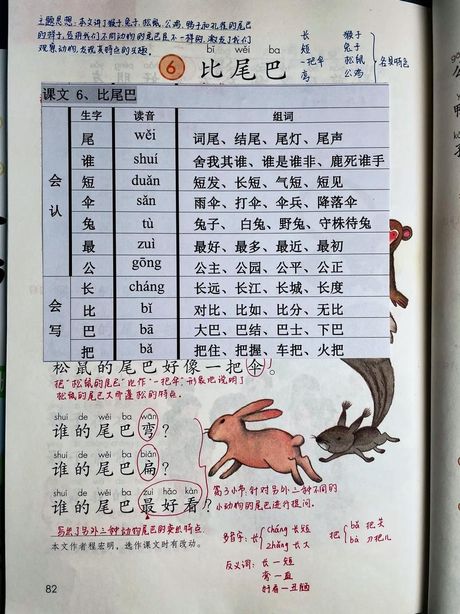 主题思想：本文讲了猴子、兔子、松鼠、公鸡、鸭子和孔雀的尾巴
的样子，说明不同动物的尾巴各不一样的，激发了我们
观察动物、发现其特点的乐趣。
长 猴子
短 兔子
一把伞 松鼠
弯 公鸡
各具特色
bǐ wěi ba
6 比尾巴
课文 6、比尾巴
生字 读音 组词
会认
尾 wěi 词尾、结尾、尾灯、尾声
谁 shuí 舍我其谁、谁是谁非、鹿死谁手
短 duǎn 短发、长短、气短、短见
伞 sǎn 雨伞、打伞、伞兵、降落伞
兔 tù 兔子、 白兔、野兔、守株待兔
最 zuì 最好、最多、最近、最初
公 gōng 公主、公园、公平、公正
会写
长 cháng 长远、长江、长城、长度
比 bǐ 对比、比如、比分、无比
巴 bā 大巴、巴结、巴士、下巴
把 bǎ 把住、把握、车把、火把
松鼠的尾巴好像一把伞。
把"松鼠的尾巴"比作"一把伞"，形象地说明了
松鼠的尾巴又大又蓬松的特点。
shuí de wěi ba wān
谁的尾巴弯？
shuí de wěi ba biǎn
谁的尾巴扁？
shuí de wěi ba zuì hǎo kàn
谁的尾巴最好看？
第3小节：针对另外三种不同的
小动物的尾巴进行提问。
写出了另外三种动物尾巴的突出特点
本文作者程宏明，选作课文时有改动。
多音字：长 cháng 长短
zhǎng 长大
把 bǎ 把关
bà 刀把儿
反义词：长—短
弯—直
好看—丑陋
82